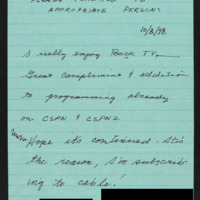 PLEASE FORWARD TO
APPROPRIATE PERSON!
10/8/98
I really enjoy Book TV.
Great complement & addition
to programming already
on CSPN & CSPN2
Hope it's continued. It's
the reason, I'm subscrib
ing to cable!